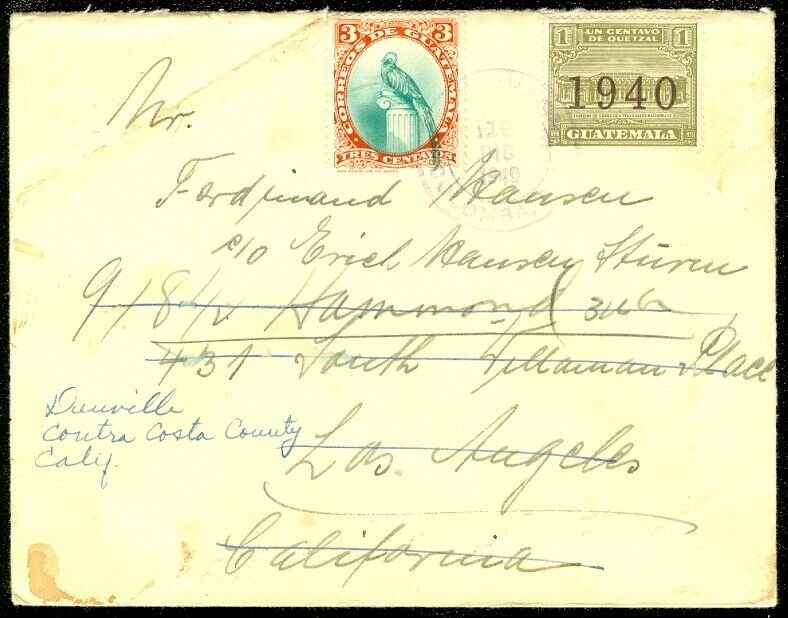 3 3
CORREOS DE GUATEMALA
TRES CENTAVOS
1 UN CENTAVO 1
DE QUETZAL
1940
EDIFICIO DE CORREOS Y TELEGRAFOS NACIONALES
GUATEMALA
DIC
1940
Mr.
Ferdinand Hansen
c/o Erich Hansen Sturm
918 1/2 Hammond
431 South Place
Los Angeles
California
Danville
Contra Costa County
Calif.